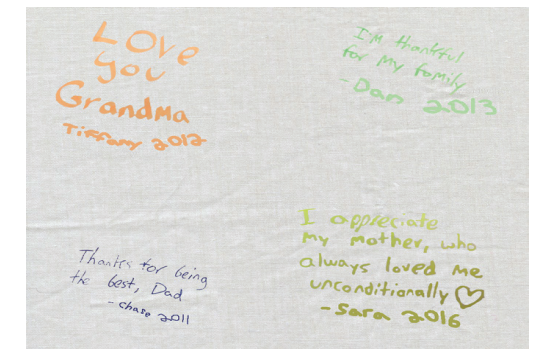 Love
you
Grandma
Tiffany 2012
I'm thankful
for my family
- Dan 2013
Thanks for being
the best, Dad
- chase 2011
I appreciate
my mother, who
always loved me
unconditionally ♡
- Sara 2016